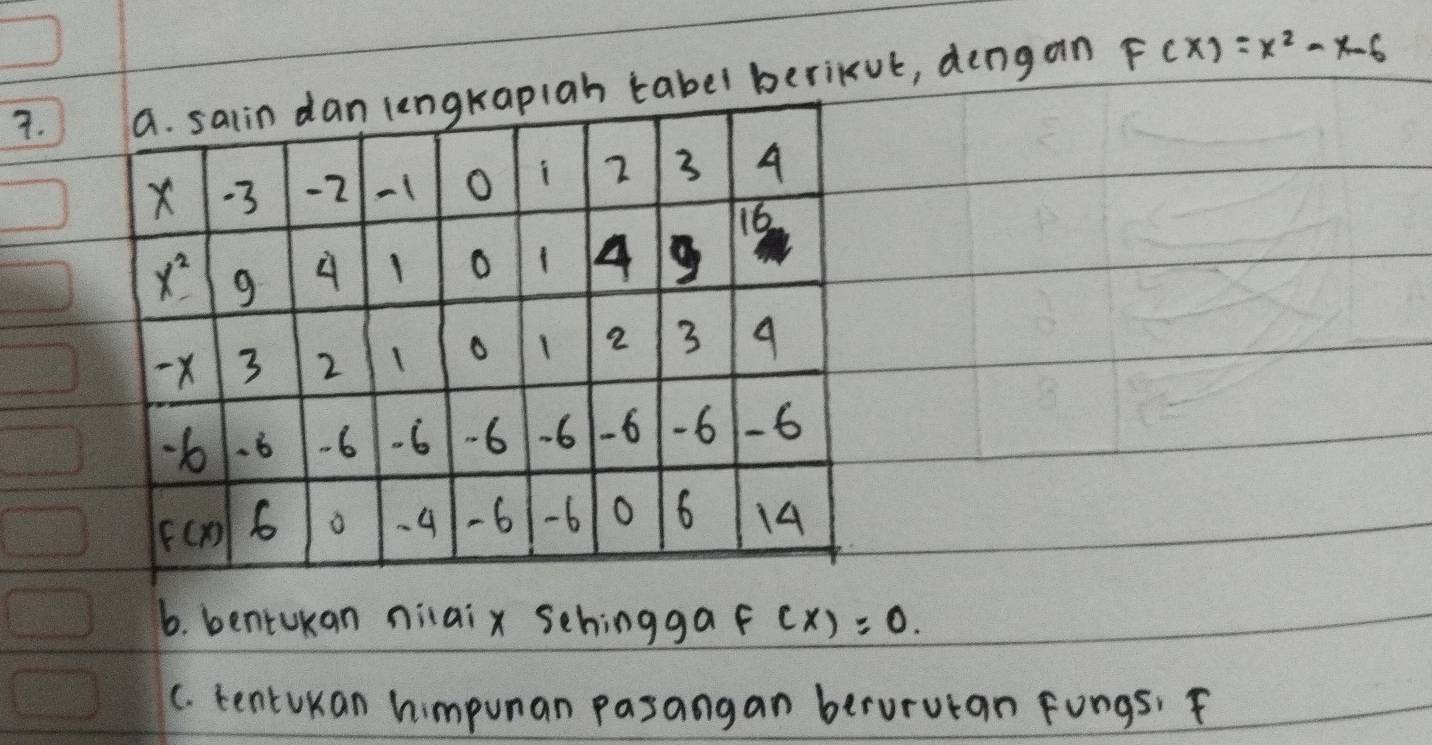 7. a. salin dan lengkaplah tabel berikut, dengan F(x) = x² - x - 6
x -3 -2 -1 0 1 2 3 4
x² 9 4 1 0 1 4 9 16
-x 3 2 1 0 1 2 3 4
-6 -6 -6 -6 -6 -6 -6 -6 -6
F(x) 6 0 -4 -6 -6 0 6 14
b. bentukan nilai x sehingga F(x) = 0.
c. tentukan himpunan pasangan berurutan Fungsi F